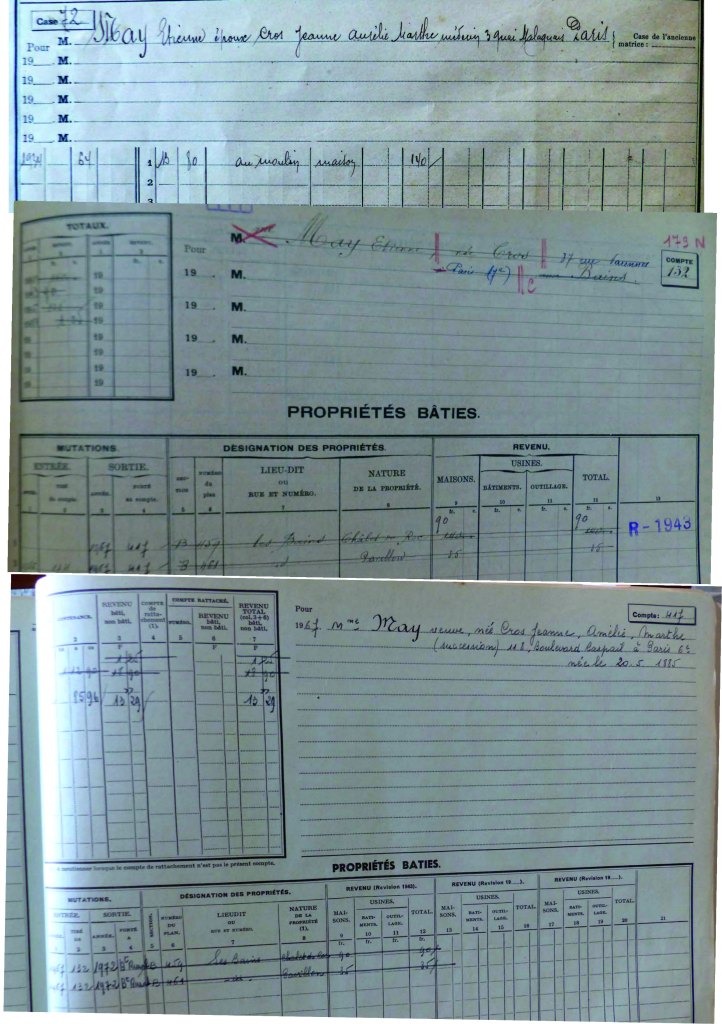 Case 72
Pour M. May Etienne époux Cros Jeanne Aurélie Marthe médecin 3 quai Malaquais Paris
Case de l'ancienne matrice :
19 M.
19 M.
19 M.
19 M.
1934 64 1 B 80 au moulin maison 140
2
3
TOTAUX.
179 N
Pour M. May Etienne né Cros 37 rue
Paris (7e) Bains
COMPTE 132
19 M.
19 M.
19 M.
19 M.
PROPRIÉTÉS BÂTIES.
MUTATIONS. DÉSIGNATION DES PROPRIÉTÉS. REVENU.
ENTRÉE. SORTIE. SECTION NUMÉRO du plan LIEU-DIT OU RUE ET NUMÉRO. NATURE DE LA PROPRIÉTÉ. MAISONS. USINES. TOTAL.
ANNÉE. PORTÉ au compte. BÂTIMENTS. OUTILLAGE.
1 2 3 4 5 6 7 8 9 10 11 12 13
fr. c.
90 90
1967 417 B 459 Les Bains Châlet
R-1943
1967 417 B 461 d° Pavillon 15 15
Pour
Compte: 417
1967 Mme May veuve, née Cros Jeanne, Amélie, Marthe
(succession) 112 Boulevard Raspail à Paris 6e
née le 20.5.1885
CONTENANCE. REVENU bâti, non bâti. COMPTE de rattachement (1). COMPTE RATTACHÉ. REVENU TOTAL (col. 3+6) bâti, non bâti.
NUMÉRO. REVENU bâti, non bâti.
2 3 4 5 6 7
1 12 90 13 90 13 90
85 96 13 29 13 29
A mentionner lorsque le compte de rattachement n'est pas le présent compte.
PROPRIÉTÉS BATIES.
MUTATIONS. DÉSIGNATION DES PROPRIÉTÉS. REVENU (Revision 1943). REVENU (Revision 19 ). REVENU (Revision 19 ).
ENTRÉE. SORTIE. SECTION. NUMÉRO DU PLAN. LIEUDIT OU RUE ET NUMÉRO. NATURE DE LA PROPRIÉTÉ (1). MAISONS. USINES. TOTAL. MAISONS. USINES. TOTAL. MAISONS. USINES. TOTAL.
TIRÉ DE ANNÉE. PORTÉ A BATIMENTS. OUTILLAGE. BATIMENTS. OUTILLAGE. BATIMENTS. OUTILLAGE.
2 3 4 5 6 7 8 9 10 11 12 13 14 15 16 17 18 19 20 21
1967 132 1972 B 459 Les Bains 90 90
1967 132 1972 B 461 Pavillon 35 35